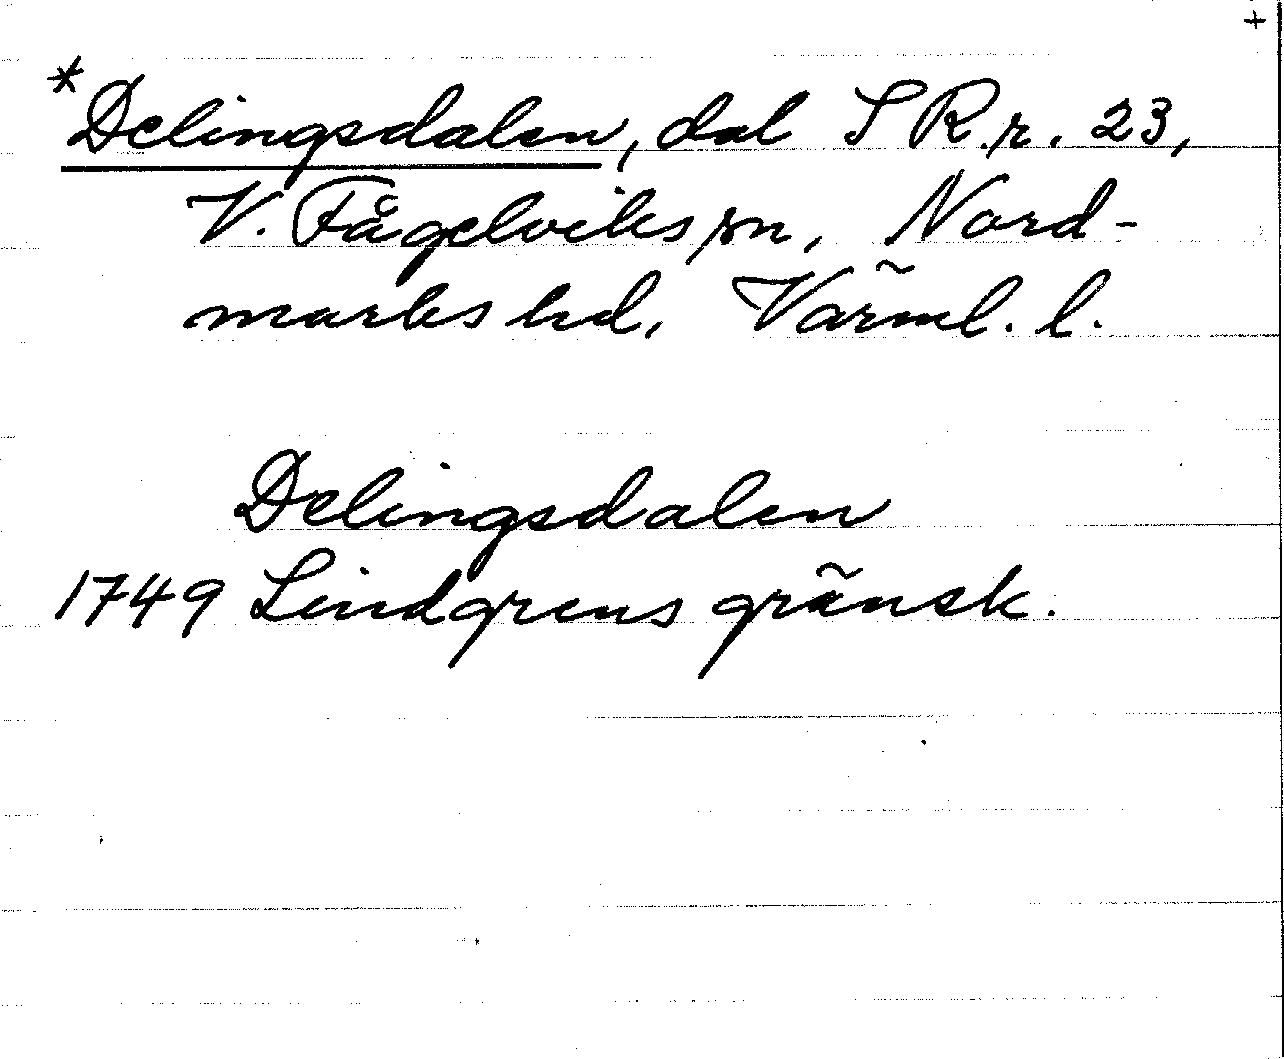 +
*Delingsdalen, dal S R.r. 23,
V. Fågelviks sn, Nord-
marks hd, Värml. l.
Delingsdalen
1749 Lindgrens gränsk.